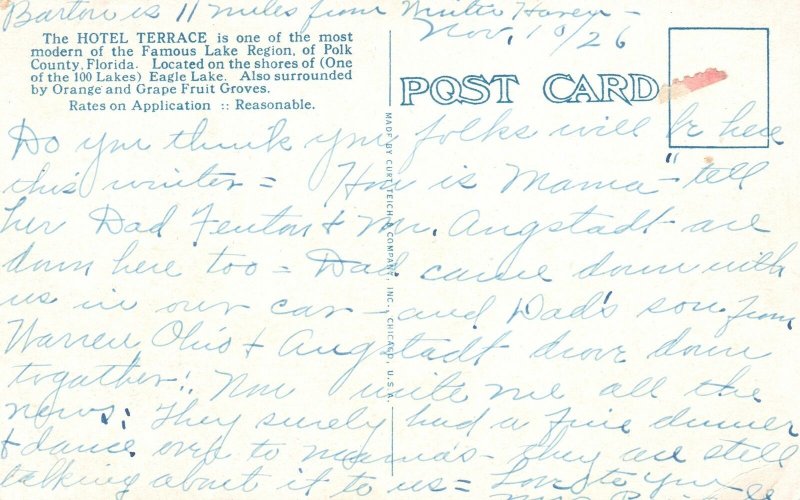 Barton is 11 miles from Winter Haven -
Nov, 10/26
The HOTEL TERRACE is one of the most
modern of the Famous Lake Region, of Polk
County, Florida. Located on the shores of (One
of the 100 Lakes) Eagle Lake. Also surrounded
by Orange and Grape Fruit Groves.
Rates on Application :: Reasonable.
POST CARD
MADE BY CURT TEICH & COMPANY, INC., CHICAGO, U.S.A.
Do you think you folks will be here
this winter = How is Mama - tell
her Dad Fenton & Mr. Angstadt are
down here too = Dad came down with
us in our car - and Dad's son from
Warren Ohio & Angstadt drove down
togather! Now write me all the
news; They surely had a fine dinner
& dance over to mama's - they are still
talking about it to us = Love to you